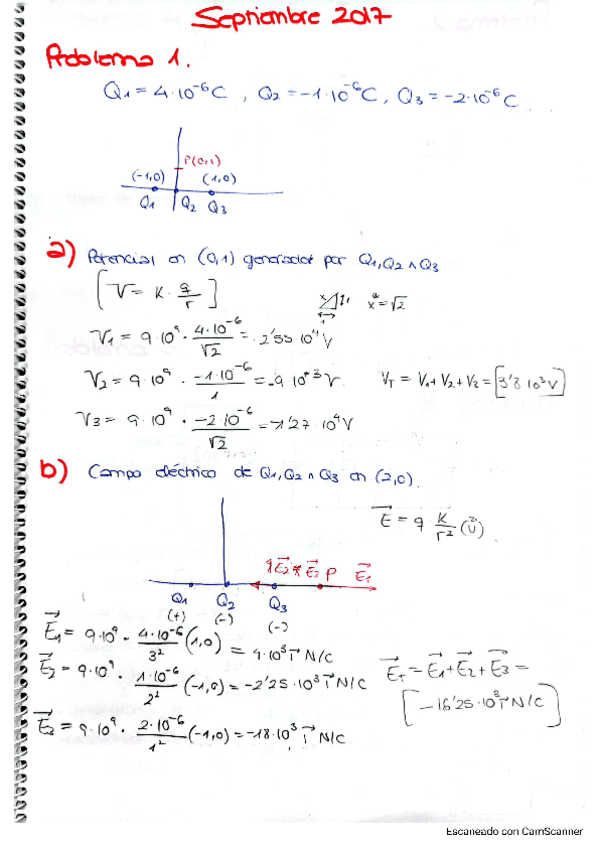 Septiembre 2017
Problema 1.
Q1 = 4·10⁻⁶C , Q2 = -1·10⁻⁶C , Q3 = -2·10⁻⁶C
P(0,1)
(-1,0) (1,0)
Q1 Q2 Q3
a) Potencial en (0,1) generador por Q1, Q2 ∧ Q3
[V = K · q/r]
x 1 1 x = √2
V1 = 9·10⁹ · 4·10⁻⁶/√2 = 2'55 10⁴V
V2 = 9·10⁹ · -1·10⁻⁶/1 = -9·10⁺³ V. VT = V1+V2+V3 = [3'8 10³V]
V3 = 9·10⁹ · -2·10⁻⁶/√2 = -1'27·10⁴V
b) Campo eléctrico de Q1, Q2 ∧ Q3 en (2,0).
E⃗ = q · K/r² (u⃗)
E⃗2 E⃗3 P E⃗1
Q1 Q2 Q3
(+) (-) (-)
E⃗1 = 9·10⁹ · 4·10⁻⁶/3² (1,0) = 4·10³ i⃗ N/C
E⃗2 = 9·10⁹ · 1·10⁻⁶/2² (-1,0) = -2'25·10³ i⃗ N/C
E⃗T = E⃗1 + E⃗2 + E⃗3 =
[-16'25·10³ i⃗ N/C]
E⃗3 = 9·10⁹ · 2·10⁻⁶/1² (-1,0) = -18·10³ i⃗ N/C
Escaneado con CamScanner